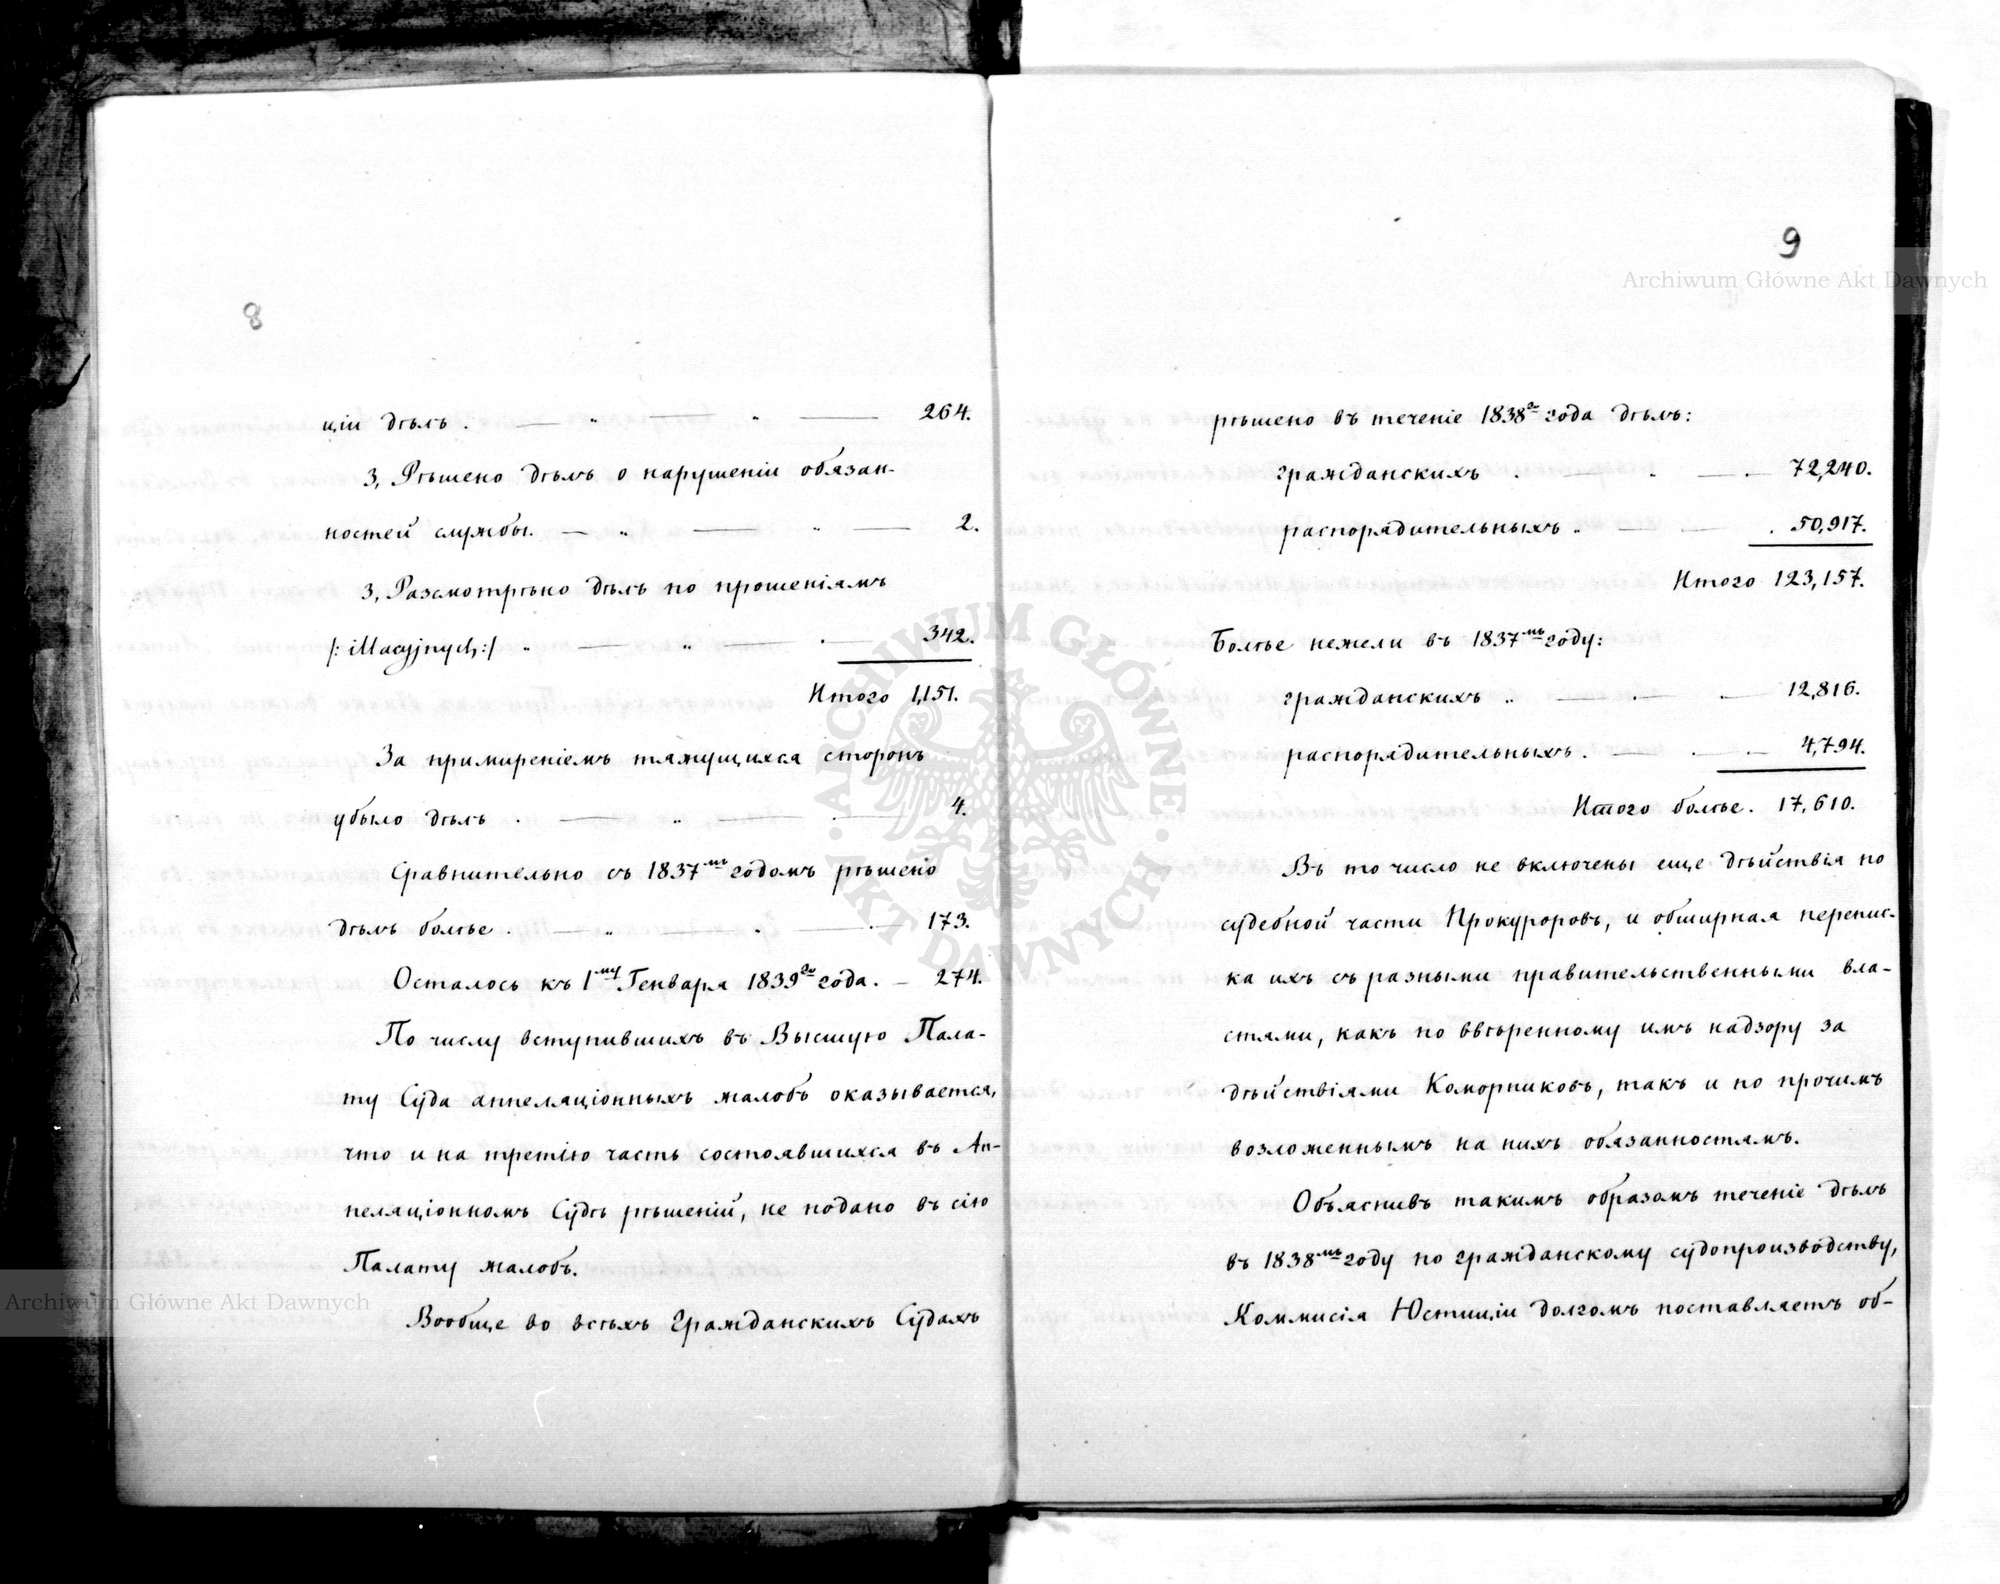 8
цiи дѣлъ . — „ — „ — 264.
3, Рѣшено дѣлъ о нарушенiи обязан-
ностей службы. — „ — „ — 2.
3, Разсмотрѣно дѣлъ по прошенiямъ
/: illacyjnych :/ „ — „ — . — 342.
Итого 1,151.
За примиренiемъ тяжущихся сторонъ
убыло дѣлъ . — „ — . — 4.
Сравнительно съ 1837-мъ годомъ рѣшено
дѣлъ болѣе . — „ — „ — . — 173.
Осталось къ 1-му Генваря 1839го года. — 274.
По числу вступившихъ въ Высшую Пала-
ту Суда аппеляцiонныхъ жалобъ оказывается,
что и на третiю часть состоявшихся въ Ап-
пеляцiонномъ Судѣ рѣшенiй, не подано въ сiю
Палату жалобъ.
Вообще во всѣхъ Гражданскихъ Судахъ
9
рѣшено въ теченiе 1838го года дѣлъ:
гражданскихъ . — . — . — 72,240.
распорядительныхъ „ — — . 50,917.
Итого 123,157.
Болѣе нежели въ 1837-мъ году:
гражданскихъ „ — . — . — 12,816.
распорядительныхъ . — . — 4,794.
Итого болѣе. 17,610.
Въ то число не включены еще дѣйствiя по
судебной части Прокуроровъ, и обширная перепис-
ка ихъ съ разными правительственными вла-
стями, какъ по ввѣренному имъ надзору за
дѣйствiями Коморниковъ, такъ и по прочимъ
возложеннымъ на нихъ обязанностямъ.
Объяснивъ такимъ образомъ теченiе дѣлъ
въ 1838-мъ году по гражданскому судопроизводству,
Коммисiя Юстицiи долгомъ поставляетъ об-
Archiwum Główne Akt Dawnych
Archiwum Główne Akt Dawnych
ARCHIWUM GŁÓWNE · AKT DAWNYCH ·